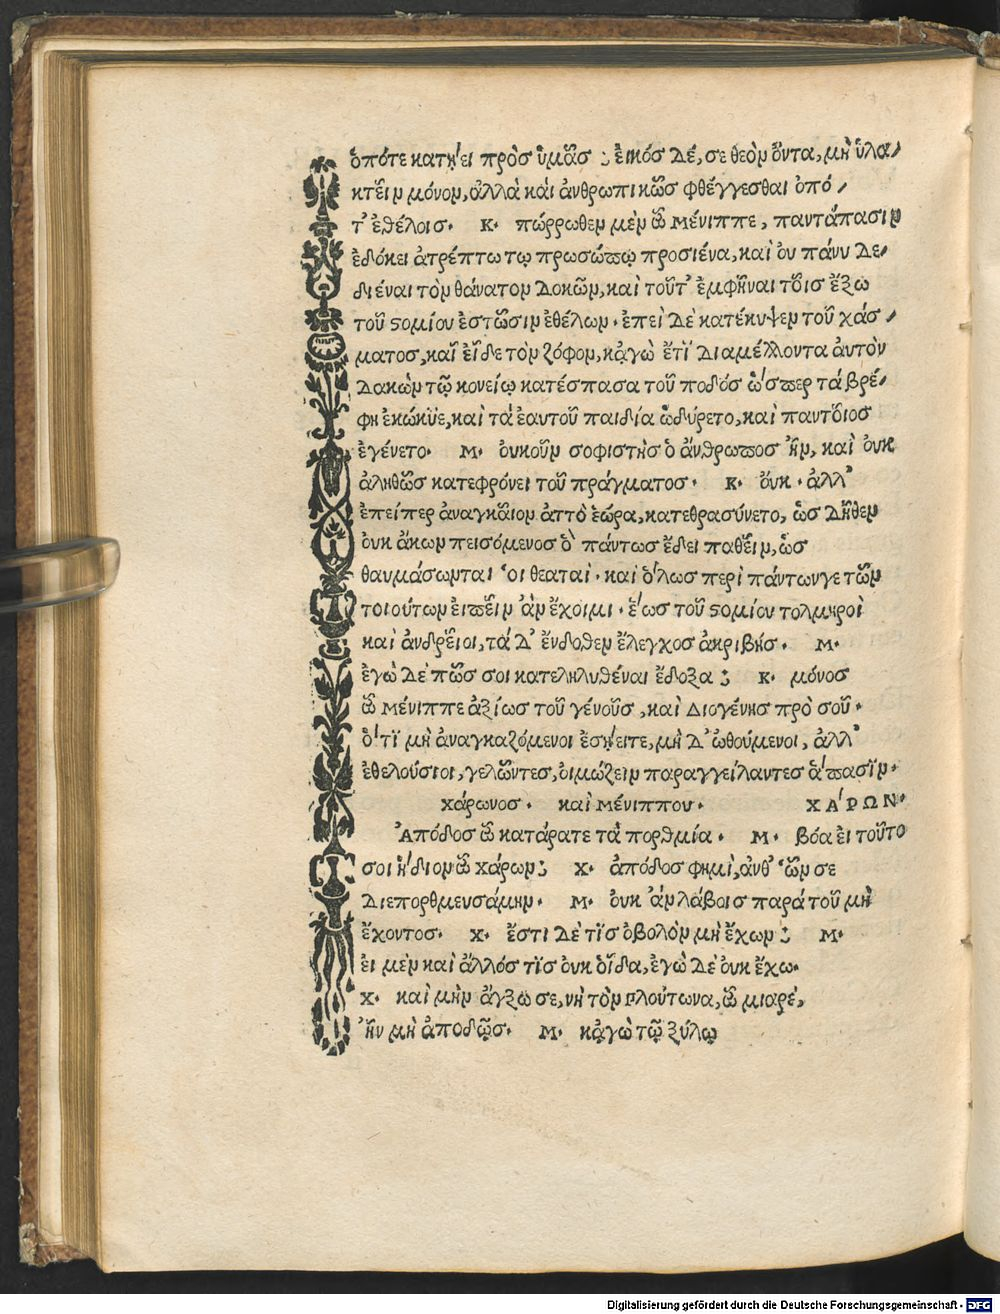 ὁπότε κατῄει πρὸσ ὑμᾶσ ; ἐικόσ δέ, σε θεὸν ὄντα, μὴ ὑλα/
κτεῖν μόνον, ἀλλὰ κὰι ἀνθρωπικῶσ φθέγγεσθαι ὁπό/
τ' ἐθέλοισ. Κ. πόρρωθεν μὲν ὦ Μένιππε, παντάπασιν
ἐδόκει ἀτρέπτω τῳ προσώπῳ προσιένα, καὶ ὀυ πάνυ δε/
διέναι τὸν θάνατον δοκῶν, καὶ τοῦτ' ἐμφῆναι τοῖσ ἔξω
τοῦ στομίου ἑστῶσιν ἐθέλων. ἐπεὶ δὲ κατέκυψεν τοῦ χάσ/
ματοσ, καὶ εἶδε τὸν ζόφον, κᾀγὼ ἔτϊ διαμέλλοντα ἀυτὸν
δακὼν τῷ κονείῳ κατέσπασα τοῦ ποδόσ ὥσπερ τά βρέ/
φη ἐκώκϋε, καὶ τά ἑαυτοῦ παιδία ὠδύρετο, καὶ παντοῖοσ
ἐγένετο. Μ. ὀυκοῦν σοφιστὴσ ὁ ἄνθρωποσ ἦν, καὶ ὀυκ
ἀληθῶσ κατεφρόνει τοῦ πράγματοσ. Κ. ὄυκ. ἀλλ'
ἐπείπερ ἀναγκαῖον ἀττὸ ἑώρα, κατεθρασύνετο, ὡσ δῆθεν
ὀυκ ἄκων πεισόμενοσ ὃ πάντωσ ἔδει παθεῖν, ὡσ
θαυμάσωνται ὁι θεαταί. καὶ ὅλωσ περὶ πάντων γε τῶν
τοιούτων ἐιπεῖν ἂν ἔχοιμι. ἕωσ τοῦ στομίου τολμηροὶ
καὶ ἀνδρεῖοι, τά δ' ἔνδοθεν ἔλεγχοσ ἀκριβήσ. Μ.
ἐγὼ δὲ πῶσ σοι κατεληλυθέναι ἔδοξα ; Κ. μόνοσ
ὦ Μένιππε ἀξίωσ τοῦ γένουσ, καὶ Διογένησ πρὸ σοῦ.
ὅτϊ μὴ ἀναγκαζόμενοι ἐσῄειτε, μὴ δ' ὠθούμενοι, ἀλλ'
ἐθελούσιοι, γελῶντεσ, ὀιμώζειν παραγγείλαντεσ ἅπασϊν.
Χάρωνοσ. καὶ Μένιππου. ΧΆΡΩΝ.
Ἀπόδοσ ὦ κατάρατε τὰ πορθμία. Μ. βόα ἐι τοῦτο
σοι ἥδιον ὦ Χάρων ; Χ. ἀπόδοσ φημὶ, ἀνθ' ὧν σε
διεπορθμευσάμην. Μ. ὀυκ ἂν λάβοισ παρά τοῦ μὴ
ἔχοντοσ. Χ. ἔστι δέ τϊσ ὀβολὸν μὴ ἔχων ; Μ.
ἐι μὲν καὶ ἄλλόσ τϊσ ὀυκ οἶδα, ἐγὼ δὲ ὀυκ ἔχω.
Χ. καὶ μὴν ἄγξω σε, νὴ τὸν Πλούτωνα, ὦ μιαρὲ,
ἢν μὴ ἀποδῷσ. Μ. κᾀγὼ τῷ ξύλῳ
Digitalisierung gefördert durch die Deutsche Forschungsgemeinschaft - DFG